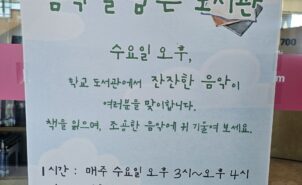 음악을 담은 도서관
700
수요일 오후,
학교 도서관에서 잔잔한 음악이
여러분을 맞이합니다.
책을 읽으며, 조용한 음악에 귀 기울여 보세요.
시간 : 매주 수요일 오후 3시~오후 4시